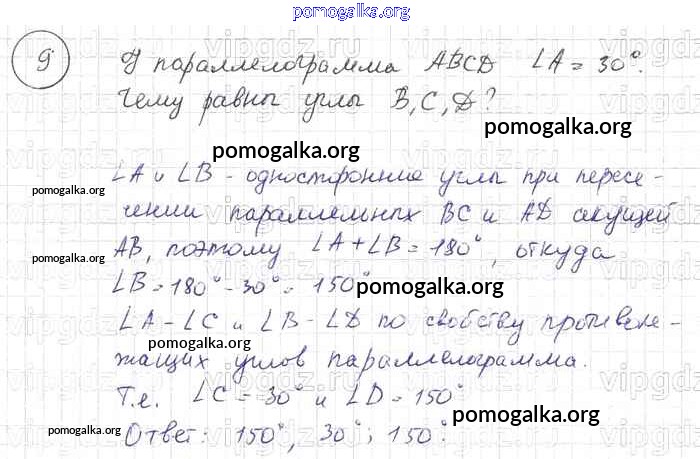 pomogalka.org
9 У параллелограмма ABCD ∠A = 30°.
Чему равны углы B, C, D?
pomogalka.org
pomogalka.org
∠A и ∠B - односторонние углы при пересе-
pomogalka.org
чении параллельных BC и AD секущей
AB, поэтому ∠A + ∠B = 180°, откуда
pomogalka.org
∠B = 180° - 30° = 150°
pomogalka.org
∠A - ∠C и ∠B - ∠D по свойству противоле-
pomogalka.org
жащих углов параллелограмма.
Т.е. ∠C = 30° и ∠D = 150°
pomogalka.org
pomogalka.org
Ответ: 150°, 30°; 150°.